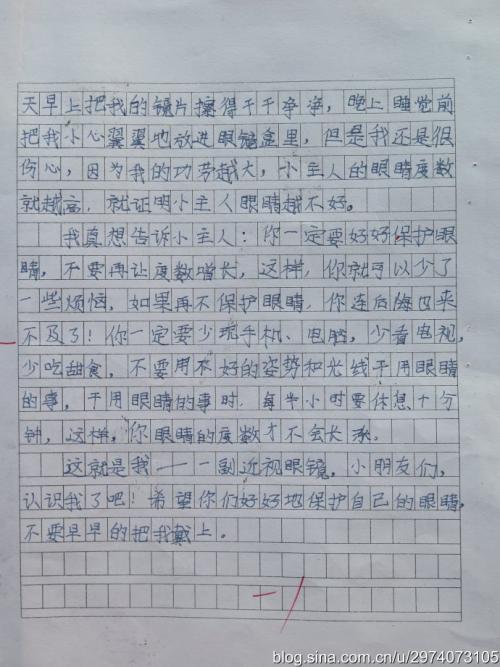 天早上把我的镜片擦得干干净净，晚上睡觉前
把我小心翼翼地放进眼镜盒里，但是我还是很
伤心，因为我的功劳越大，小主人的眼睛度数
就越高，就证明小主人眼睛越不好。
我真想告诉小主人：你一定要好好保护眼
睛，不要再让度数增长，这样，你就可以少了
一些烦恼，如果再不保护眼睛，你连后悔也来
不及了！你一定要少玩手机、电脑，少看电视，
少吃甜食，不要用不好的姿势和光线干用眼睛
的事，干用眼睛的事时，每半小时要休息十分
钟，这样，你眼睛的度数才不会长涨。
这就是我——一副近视眼镜，小朋友们，
认识我了吧！希望你们好好地保护自己的眼睛，
不要早早的把我戴上。
blog.sina.com.cn/u/2974073105